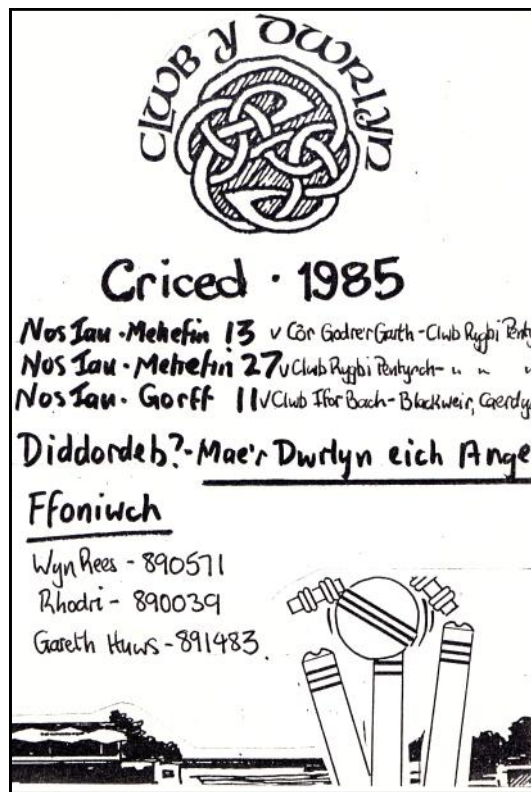 CLWB Y DWRLYN
Criced · 1985
Nos Iau · Mehefin 13 v Côr Godre'r Garth - Clwb Rygbi Penty
Nos Iau · Mehefin 27 v Clwb Rygbi Pentyrch - " " "
Nos Iau · Gorff 11 v Clwb Ifor Bach - Blackweir, Caerdy
Diddordeb? - Mae'r Dwrlyn eich Ange
Ffoniwch
Wyn Rees - 890571
Rhodri - 890039
Gareth Huws - 891483.